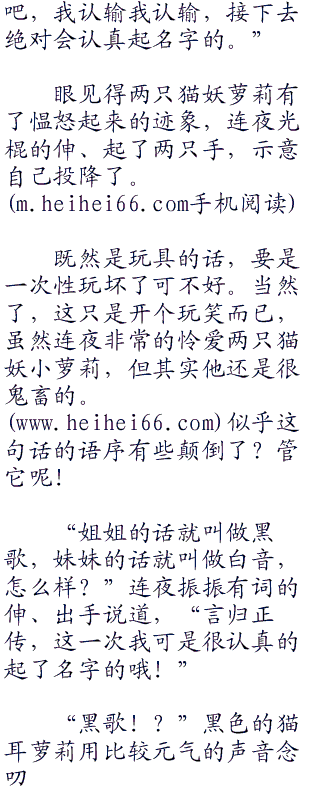 吧，我认输我认输，接下去
绝对会认真起名字的。”
眼见得两只猫妖萝莉有
了愠怒起来的迹象，连夜光
棍的伸、起了两只手，示意
自己投降了。
(m.heihei66.com手机阅读)
既然是玩具的话，要是
一次性玩坏了可不好。当然
了，这只是开个玩笑而已，
虽然连夜非常的怜爱两只猫
妖小萝莉，但其实他还是很
鬼畜的。
(www.heihei66.com)似乎这
句话的语序有些颠倒了？管
它呢！
“姐姐的话就叫做黑
歌，妹妹的话就叫做白音，
怎么样？”连夜振振有词的
伸、出手说道，“言归正
传，这一次我可是很认真的
起了名字的哦！”
“黑歌！？”黑色的猫
耳萝莉用比较元气的声音念
叨